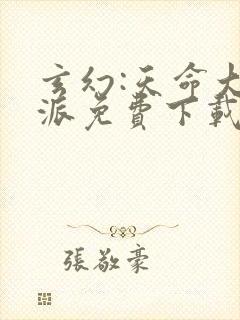 玄幻:天命大
派免費下載
張敬豪